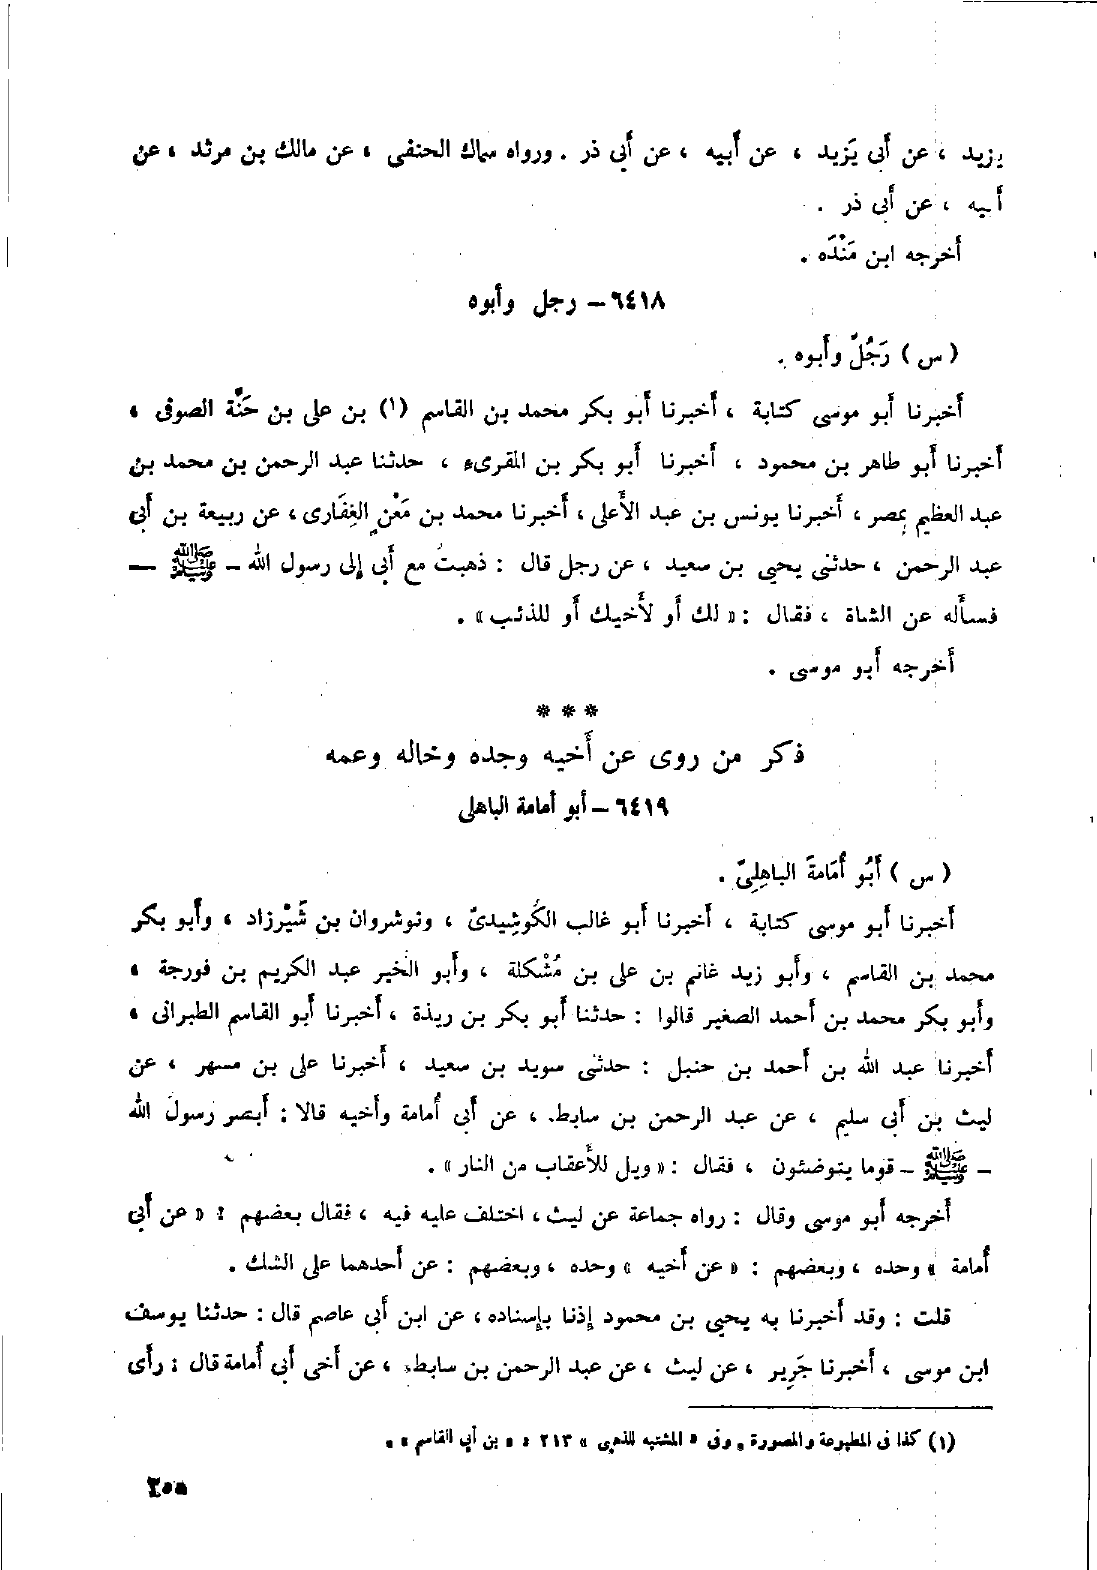 يزيد ، عن أبى يَزيد ، عن أبيه ، عن أبى ذر . ورواه سماك الحنفى ، عن مالك بن مرثد ، عن
أبيه ، عن أبى ذر .
أخرجه ابن مَنْدَه .
٦٤١٨ – رجل وأبوه
( س ) رَجُلٌ وأبوه .
أخبرنا أبو موسى كتابة ، أخبرنا أبو بكر محمد بن القاسم (١) بن على بن حَنَّة الصوفى ،
أخبرنا أبو طاهر بن محمود ، أخبرنا أبو بكر بن المقرىء ، حدثنا عبد الرحمن بن محمد بن
عبد العظيم بمصر ، أخبرنا يونس بن عبد الأعلى ، أخبرنا محمد بن مَعْنٍ الغِفَارى ، عن ربيعة بن أبى
عبد الرحمن ، حدثنى يحيى بن سعيد ، عن رجل قال : ذهبتُ مع أبى إلى رسول الله – ﷺ –
فسأله عن الشاة ، فقال : « لك أو لأخيك أو للذئب » .
أخرجه أبو موسى .
* * *
ذكر من روى عن أخيه وجده وخاله وعمه
٦٤١٩ – أبو أمامة الباهلى
( س ) أَبُو أُمَامةَ الباهِلِىّ .
أخبرنا أبو موسى كتابة ، أخبرنا أبو غالب الكُوشِيدىّ ، ونوشروان بن شَيْرزاد ، وأبو بكر
محمد بن القاسم ، وأبو زيد غانم بن على بن مُشْكلة ، وأبو الخير عبد الكريم بن فورجة ،
وأبو بكر محمد بن أحمد الصغير قالوا : حدثنا أبو بكر بن ريذة ، أخبرنا أبو القاسم الطبرانى ،
أخبرنا عبد الله بن أحمد بن حنبل : حدثنى سويد بن سعيد ، أخبرنا على بن مسهر ، عن
ليث بن أبى سليم ، عن عبد الرحمن بن سابط ، عن أبى أُمامة وأخيه قالا : أبصر رسولَ الله
– ﷺ – قوما يتوضئون ، فقال : « ويل للأعقاب من النار » .
أخرجه أبو موسى وقال : رواه جماعة عن ليث ، اختلف عليه فيه ، فقال بعضهم : « عن أبى
أُمامة » وحده ، وبعضهم : « عن أخيه » وحده ، وبعضهم : عن أحدهما على الشك .
قلت : وقد أخبرنا به يحيى بن محمود إذنا بإسناده ، عن ابن أبى عاصم قال : حدثنا يوسف
ابن موسى ، أخبرنا جَرِير ، عن ليث ، عن عبد الرحمن بن سابط ، عن أخى أبى أُمامة قال : رأى
(١) كذا فى المطبوعة والمصورة . وفى « المشتبه للذهبى » ٢١٣ : « بن أبى القاسم » .
٢٥٥